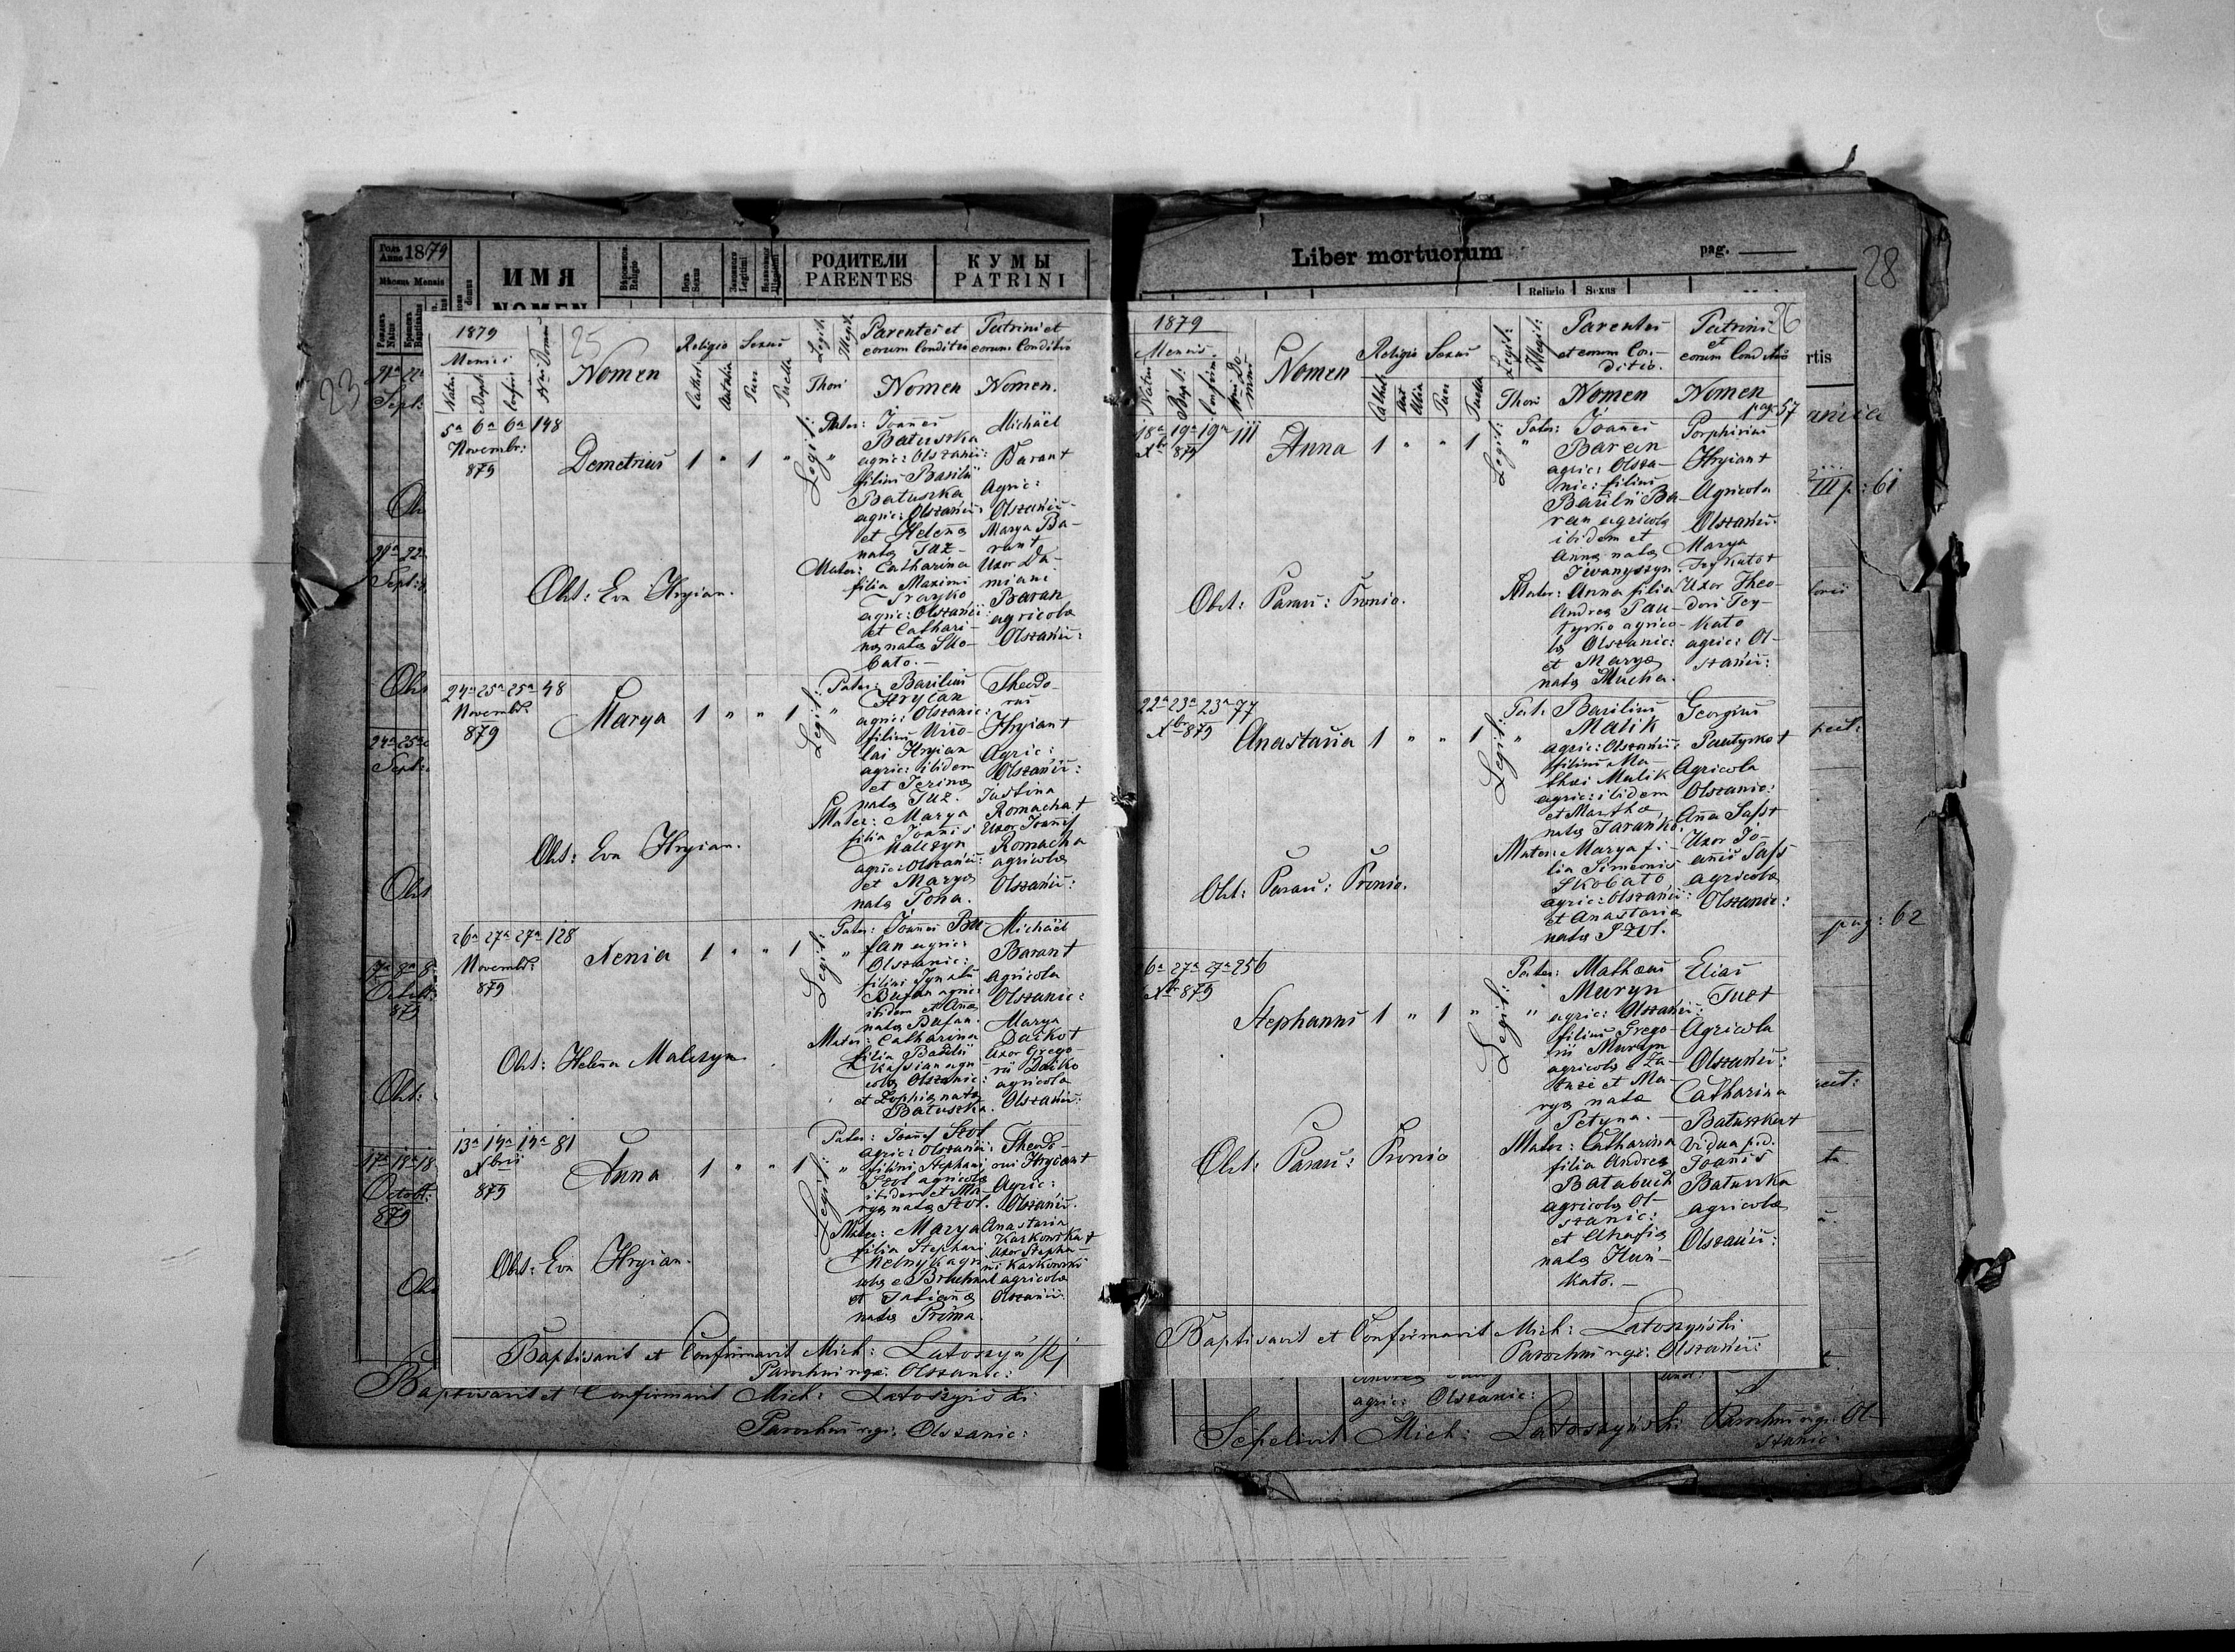 Годъ Anno 1879
Мѣсяць Mensis
ИМЯ
NOMEN
Религіо Religio
Sexus
Legitimi
РОДИТЕЛИ
PARENTES
КУМЫ
PATRINI
23
21ª 22ª
Sept:
24ª 25ª
Sept:
17ª 18ª 18
Octobr:
879
1879
Mensis
Natus
Bapt:
Confir
Nrus Domus
25
Nomen
Religio
Cathol:
Aut alia
Sexus
Puer
Puella
Legit:
Illegit:
Thori
Parentes et
eorum Conditio
Nomen
Patrini et
eorum Conditio
Nomen.
5ª 6ª 6ª 148
Novembr:
879
Demetrius 1 " 1 "
Legit: "
Pater: Joannes
Batuszka
agric: Olszanic:
filius Basilii
Batuszka
agric: Olszanic:
et Helena
nata Juz-
Mater: Catharina
filia Maximi
agric: Olszanic:
et Cathari-
na nata Sko-
bato.-
Michaël
Baran +
Agric:
Olszanic:
Marya Ba-
ran +
Uxor Da-
miani
Baran
agricola
Olszanic:
Obst: Eva Hryian.
24ª 25ª 25ª 48
Novembr:
879
Marya 1 " " 1
Legit: "
Pater: Basilius
Hrycan
agric: Olszanic:
filius Nico-
lai Hryian
agric: ibidem
et Jerina
nata Juz.
Mater: Marya
filia Joannis
Malczyn
agric: Olszanic:
et Marya
nata Pona.
Theodo-
rus
Hryian +
Agric:
Olszanic:
Justina
Romacha +
Uxor Joannis
Romacha
agricola
Olszanic:
Obst: Eva Hryian.
26ª 27ª 27ª 128
Novembr:
879
Xenia 1 " " 1
Legit: "
Pater: Joannes Bu-
fan agric:
Olszanic:
filius Ignatii
Bufan agric:
ibidem et Anna
nata Bufan.
Mater: Catharina
filia Basilii
Kassian agri-
cola Olszanic:
et Zophia nata
Batuszka.
Michaël
Baran +
agricola
Olszanic:
Marya
Daćko +
Uxor Grego-
rii Daćko
agricola
Olszanic:
Obst: Helena Malczyn.
13ª 14ª 14ª 81
Xbris
879
Anna 1 " " 1
Legit: "
Pater: Joannes Szot
agric: Olszanic:
filius Stephani
Szot agricola
ibidem et Ma-
rya nata Szot.
Mater: Marya
filia Stephani
Melnyk agri-
cola e Bruchnal
et Tatianna
nata Prima.
Theodo-
rus Hrycan +
Agric:
Olszanic:
Anastasia
Karkowska +
Uxor Stepha-
ni Karkowski
agricola
Olszanic:
Obst: Eva Hryian.
Baptisavit et Confirmavit Mich: Latoszyński
Parochus rgc: Olszanic:
Baptisavit et Confirmavit Mich: Latoszyński
Parochus rgc: Olszanic:
Liber mortuorum
pag.
28
Religio
Sexus
mortis
III p: 61
pag: 62
1879
Mensis
Natus
Bapt:
Confirm
Nri Do-
mus
Nomen
Religio
Cathol:
Aut
Alia
Sexus
Puer
Puella
Legit:
Illegit:
Thori
Parentes
et eorum Con-
ditio.
Nomen
Patrini
et
eorum Conditio
26
Nomen
pag: 57
18ª 19ª 19ª 111
Xbr 879
Anna 1 " " 1
Legit: "
Pater: Joannes
Baran
agric: Olsza-
nic: filius
Basilii Ba-
ran agricola
ibidem et
Anna nata
Iwanyszyn.
Mater: Anna filia
Andrea Pau-
tyrko agrico-
la Olszanic:
et Marya
nata Mucha.
Porphirius
Hryian +
Agricola
Olszanic:
Marya
Fejkato +
Uxor Theo-
dori Fej-
kato
agric: Ol-
szanic:
Obst: Paras: Pronio.
22ª 23ª 23ª 77
Xbr 879
Anastasia 1 " " 1
Legit: "
Pat: Basilius
Malik
agric: Olszanic:
filius Ma-
thei Malik
agric: ibidem
et Martha
nata Taranko.
Mater: Marya fi-
lia Simeonis
Skobato
agric: Olszanic:
et Anastasia
nata Szot.
Georgius
Pautyrko +
Agricola
Olszanic:
Anna Sass +
Uxor Jo-
annis Sass
agricola
Olszanic:
Obst: Paras: Pronio.
26ª 27ª 27ª 256
Xbr 879
Stephanus 1 " 1 "
Legit: "
Pater: Mathaeus
Muryn
agric: Olszanic:
filius Grego-
rii Muryn
agricola e Za-
et Ma-
rya nata
Petyna.-
Mater: Catharina
filia Andrea
Batabuch
agricola Ol-
szanic:
et Ahafia
nata Hun-
kato.-
Elias
Juz +
Agricola
Olszanic:
Catharina
Batuszka +
Vidua p.d.
Joannis
Batuszka
agricola
Olszanic:
Obst: Paras: Pronio
Baptisavit et Confirmavit Mich: Latoszyński
Parochus rgc: Olszanic:
agric: Olszanic:
Sepelivit Mich: Latoszyński Parochus rgc: Ol-
szanic: